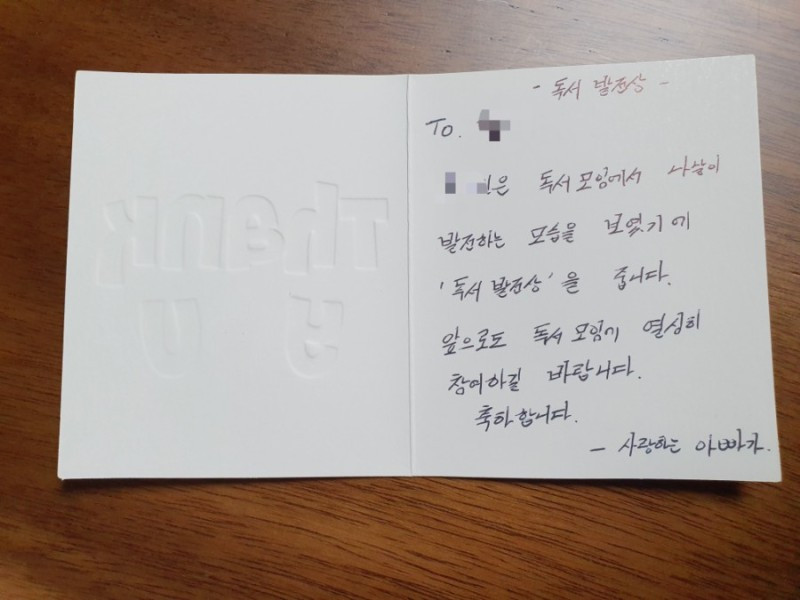 Thank
U
- 독서 발전상 -
To.
은 독서 모임에서 나날이
발전하는 모습을 보였기에
'독서 발전상'을 줍니다.
앞으로도 독서 모임에 열심히
참여하길 바랍니다.
축하합니다.
- 사랑하는 아빠가.